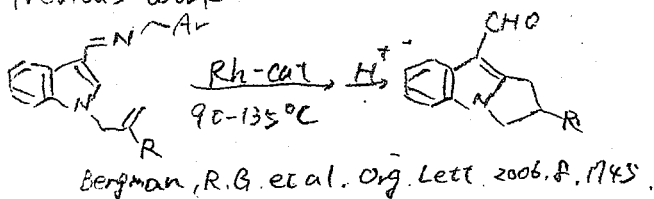 Previous work
N Ar
CHO
Rh-cat H+
90-135°C
N
R
N
R
Bergman, R.G. et al. Org. Lett. 2006, 8, 1745.